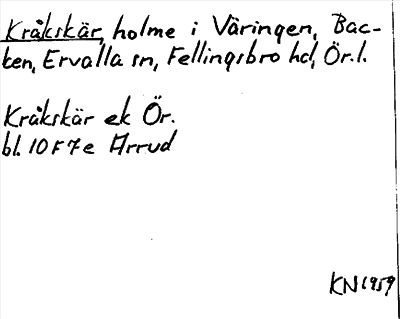 Kråkskär, holme i Väringen, Bac-
ken, Ervalla sn, Fellingsbro hd, Ör. l.
Kråkskär ek Ör.
bl. 10 F 7 e Arrud
KN 1959